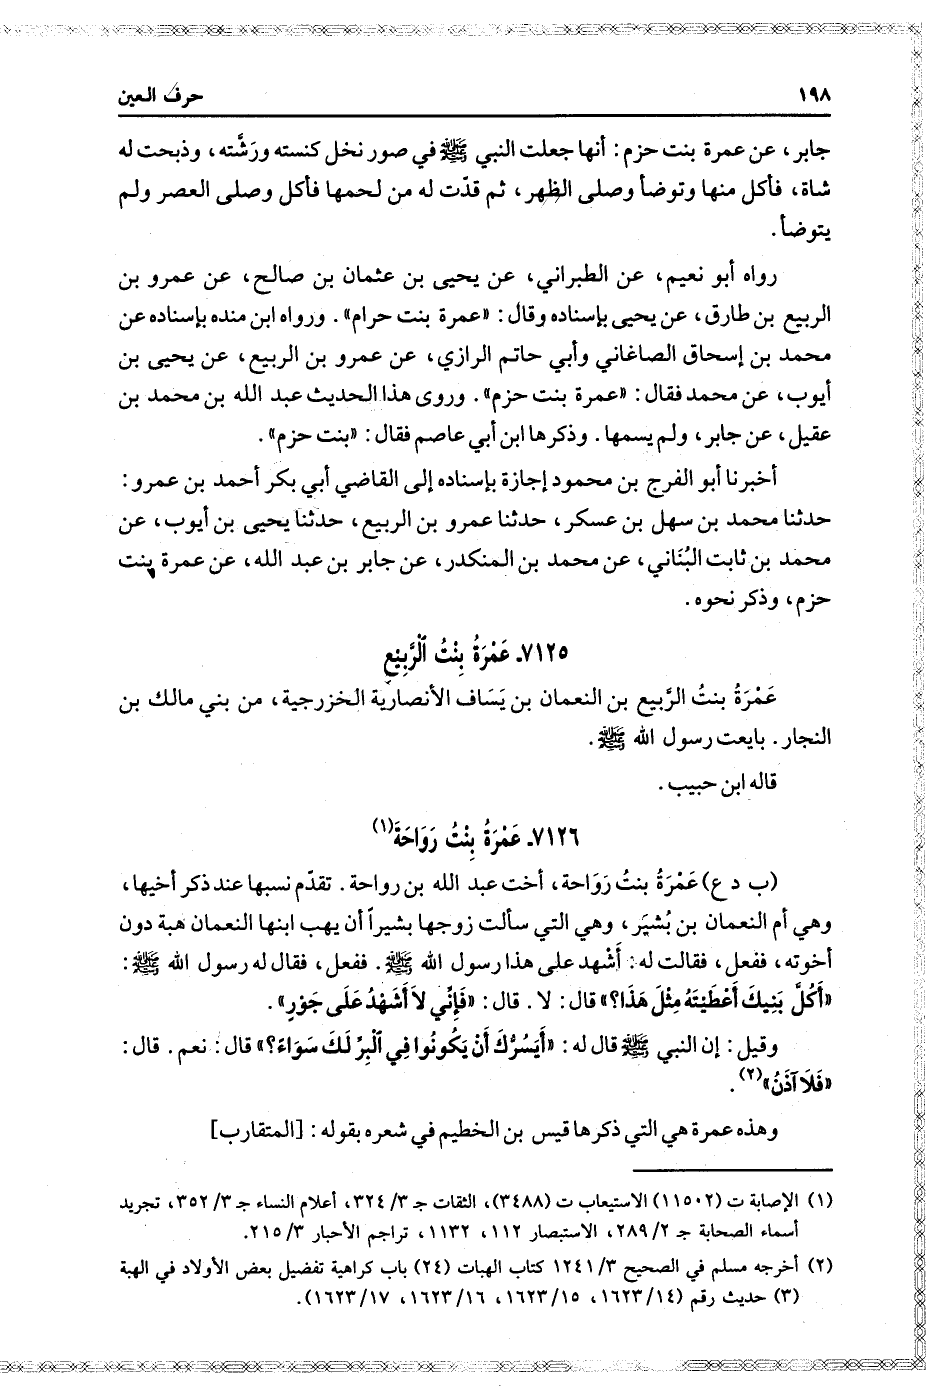 ١٩٨ حرف العين
جابر، عن عمرة بنت حزم: أنها جعلت النبي ﷺ في صور نخل كنسته ورَشَّته، وذبحت له
شاة، فأكل منها وتوضأ وصلى الظهر، ثم قدّت له من لحمها فأكل وصلى العصر ولم
يتوضأ.
رواه أبو نعيم، عن الطبراني، عن يحيى بن عثمان بن صالح، عن عمرو بن
الربيع بن طارق، عن يحيى بإسناده وقال: «عمرة بنت حرام». ورواه ابن منده بإسناده عن
محمد بن إسحاق الصاغاني وأبي حاتم الرازي، عن عمرو بن الربيع، عن يحيى بن
أيوب، عن محمد فقال: «عمرة بنت حزم». وروى هذا الحديث عبد الله بن محمد بن
عقيل، عن جابر، ولم يسمها. وذكرها ابن أبي عاصم فقال: «بنت حزم».
أخبرنا أبو الفرج بن محمود إجازة بإسناده إلى القاضي أبي بكر أحمد بن عمرو:
حدثنا محمد بن سهل بن عسكر، حدثنا عمرو بن الربيع، حدثنا يحيى بن أيوب، عن
محمد بن ثابت البُنَاني، عن محمد بن المنكدر، عن جابر بن عبد الله، عن عمرة بنت
حزم، وذكر نحوه.
٧١٢٥ـ عَمْرَةُ بِنْتُ ٱلْرَّبِيْعِ
عَمْرَةُ بنتُ الرَّبيع بن النعمان بن يَسَاف الأنصارية الخزرجية، من بني مالك بن
النجار. بايعت رسول الله ﷺ.
قاله ابن حبيب.
٧١٢٦ـ عَمْرَةُ بِنْتُ رَوَاحَةَ(١)
(ب د ع) عَمْرَةُ بنتُ رَوَاحة، أخت عبد الله بن رواحة. تقدّم نسبها عند ذكر أخيها،
وهي أم النعمان بن بُشيَر، وهي التي سألت زوجها بشيراً أن يهب ابنها النعمان هبة دون
أخوته، ففعل، فقالت له: أَشْهد على هذا رسول الله ﷺ. ففعل، فقال له رسول الله ﷺ:
«أَكُلَّ بَنِيكَ أَعْطَيْتَهُ مِثْلَ هَذَا؟» قال: لا. قال: «فَإِنِّي لاَ أَشْهَدُ عَلَى جَوْرٍ».
وقيل: إن النبي ﷺ قال له: «أَيَسُرُّكَ أَنْ يَكُونُوا فِي ٱلْبِرِّ لَكَ سَوَاءً؟» قال: نعم. قال:
«فَلاَ آذَنُ»(٢).
وهذه عمرة هي التي ذكرها قيس بن الخطيم في شعره بقوله: [المتقارب]
(١) الإصابة ت (١١٥٠٢) الاستيعاب ت (٣٤٨٨)، الثقات جـ ٣/ ٣٢٤، أعلام النساء جـ ٣/ ٣٥٢، تجريد
أسماء الصحابة جـ ٢/ ٢٨٩، الاستبصار ١١٢، ١١٣٢، تراجم الأحبار ٣/ ٢١٥.
(٢) أخرجه مسلم في الصحيح ٣/ ١٢٤١ كتاب الهبات (٢٤) باب كراهية تفضيل بعض الأولاد في الهبة
(٣) حديث رقم (١٦٢٣/١٤، ١٦٢٣/١٥، ١٦٢٣/١٦، ١٦٢٣/١٧).